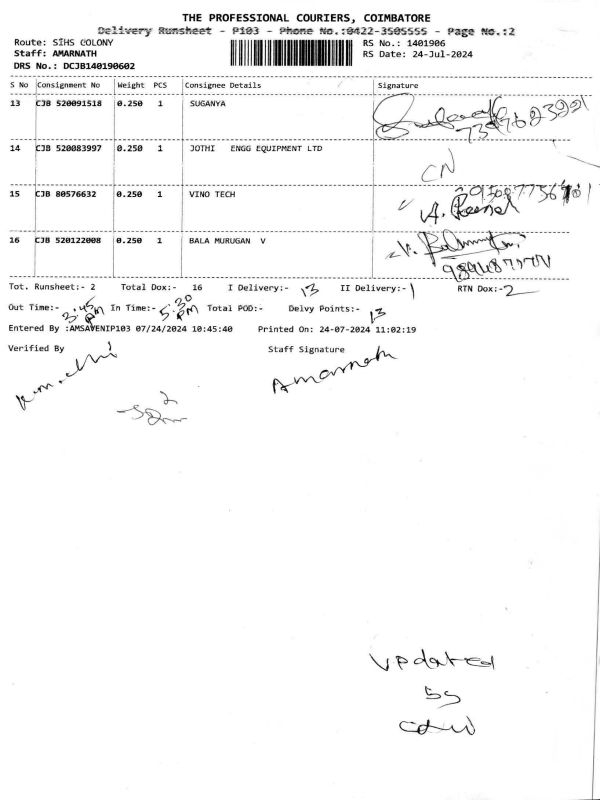 THE PROFESSIONAL COURIERS, COIMBATORE
Delivery Runsheet - P103 - Phone No.:0422-3505555 - Page No.:2
Route: SIHS COLONY
RS No.: 1401906
Staff: AMARNATH
RS Date: 24-Jul-2024
DRS No.: DCJB140190602
S No Consignment No Weight PCS Consignee Details Signature
13 CJB 520091518 0.250 1 SUGANYA
14 CJB 520083997 0.250 1 JOTHI ENGG EQUIPMENT LTD
CN
15 CJB 80576632 0.250 1 VINO TECH
16 CJB 520122008 0.250 1 BALA MURUGAN V
Tot. Runsheet:- 2 Total Dox:- 16 I Delivery:- 13 II Delivery:- 1 RTN Dox:- 2
Out Time:- 3:45 PM In Time:- 5:30 PM Total POD:- Delvy Points:- 13
Entered By :AMSAVENIP103 07/24/2024 10:45:40 Printed On: 24-07-2024 11:02:19
Verified By Staff Signature
Amarnath
Updated